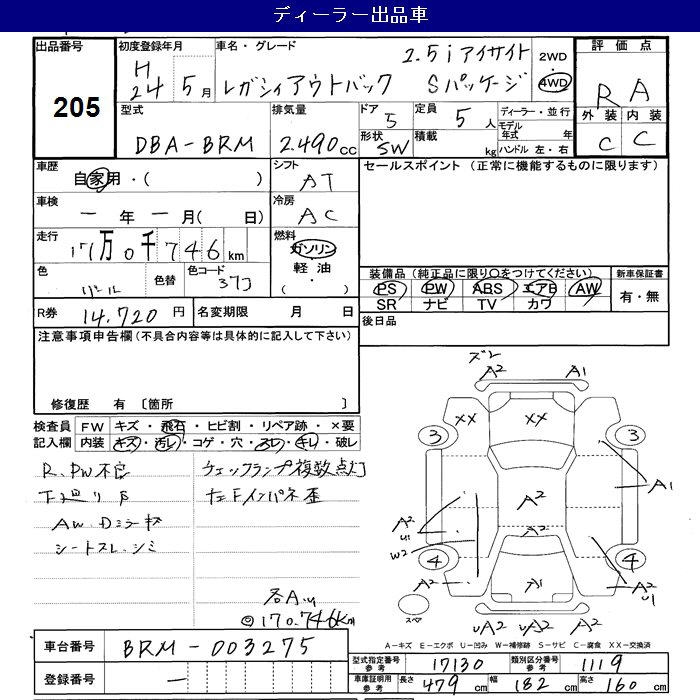 ディーラー出品車
出品番号 205
初度登録年月 H24 5月
車名・グレード レガシィアウトバック 2.5i アイサイト Sパッケージ
2WD 4WD
評価点 R A
外装 C 内装 C
型式 DBA-BRM
排気量 2.490cc
ドア 5
形状 SW
定員 5人
積載 kg
ディーラー・並行
モデル年式 年
ハンドル 左・右
車歴 自家用・( )
シフト AT
セールスポイント (正常に機能するものに限ります)
車検 ー年ー月( 日)
冷房 AC
走行 17万0千746km
燃料 ガソリン 軽油 ・( )
色 パール 色替 色コード 37J
装備品 (純正品に限り○をつけてください)
PS PW ABS エアB AW
SR ナビ TV カワ
新車保証書 有・無
R券 14.720円
名変期限 月 日
後日品
注意事項申告欄(不具合内容等は具体的に記入して下さい)
修復歴 有 〔箇所 〕
検査員記入欄
FW キズ・飛石・ヒビ割・リペア跡・×要
内装 キズ・汚レ・コゲ・穴・スレ・キレ・破レ
R.PW不良
下廻りサビ
AW.Dミラーキズ
シートスレ.シミ
ウォッシャーランプ複数点灯
左Fインパネ歪
各A.U
◎170.746km
ズレ
A2 A1
XX XX
3 3
A2
A1
A2 U1
W2
A2
4 4
A2 A1 A2 U1
スペア
UA2 UA2 A2
A-キズ E-エクボ U-凹み W-補修跡 S-サビ C-腐食 XX-交換済
車台番号 BRM-003275
登録番号 ー
型式指定番号 参考 17130
類別区分番号 参考 1119
車庫証明用 参考 長さ 479cm 幅 182cm 高さ 160cm